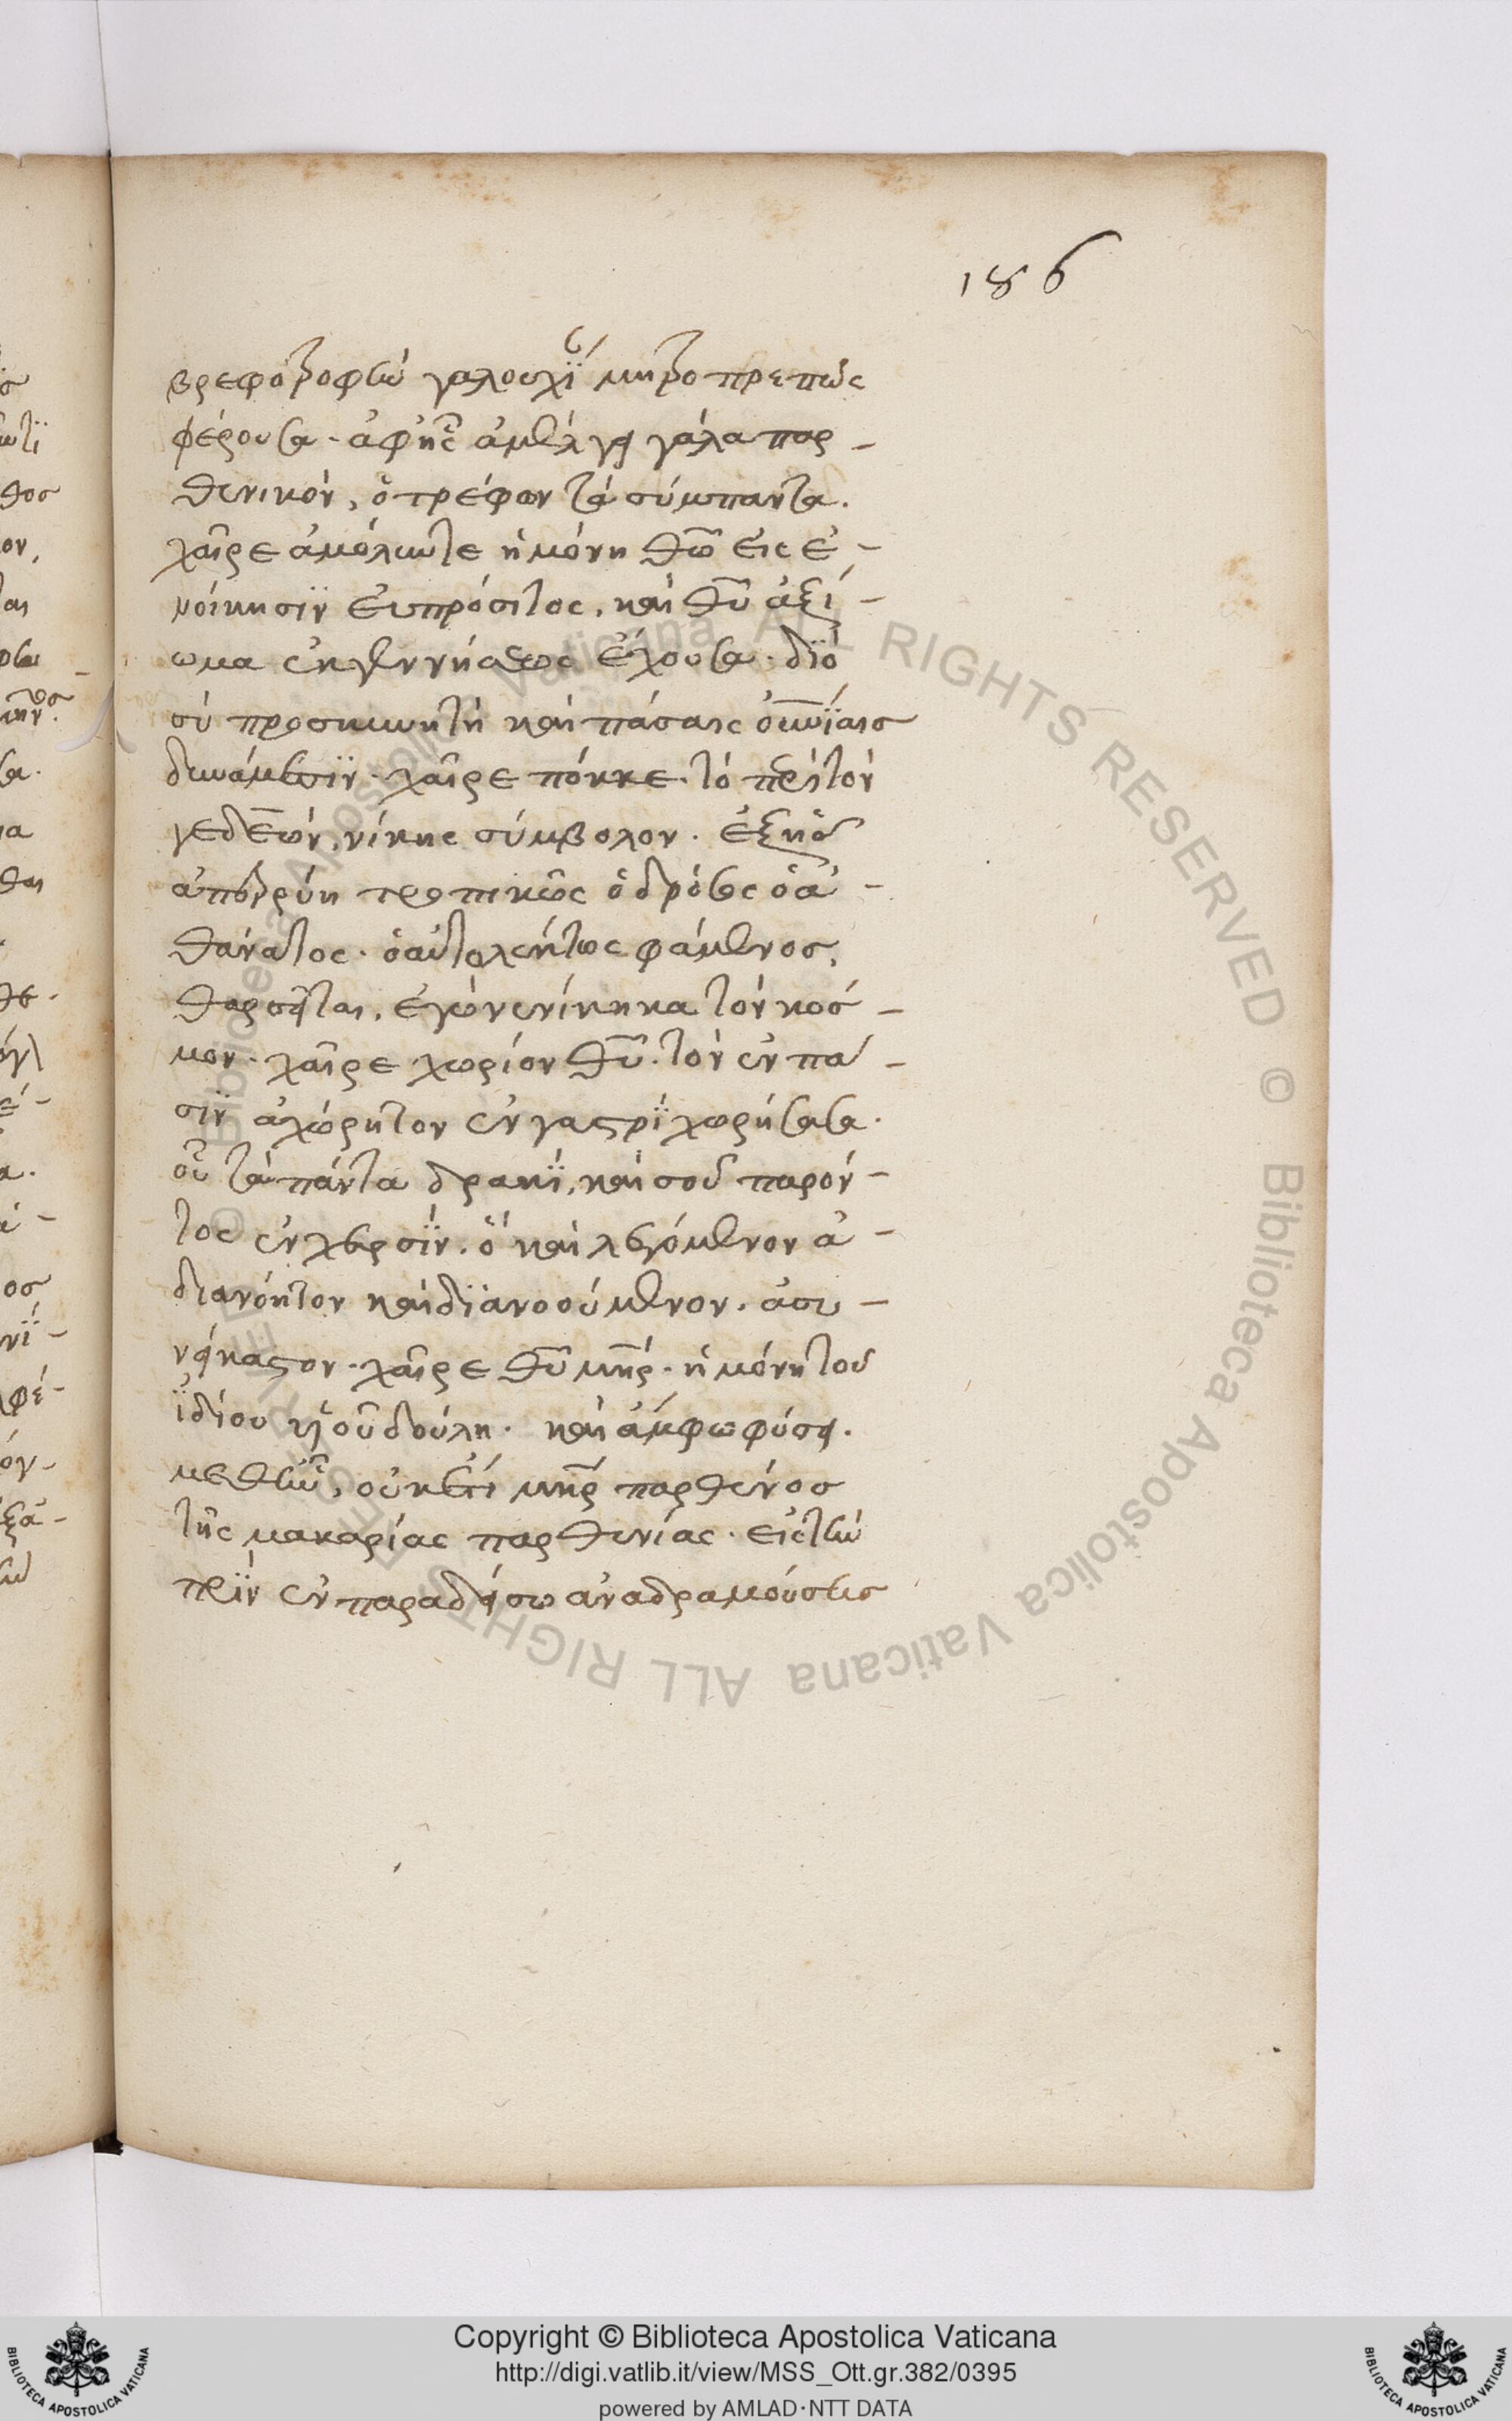 186
βρεφοτροφεῖν γαλουχί μητροπρεπώς
φέρουσα. ἀφῆς ἀμέλγει γάλα παρ-
θενικὸν, ὁ τρέφων τὰ σύμπαντα.
χαῖρε ἀμόλυντε ἡ μόνη θῶ εἰς ἐ-
νοίκησϊν εὐπρόσιτος, καὶ θῦ ἀξί-
ωμα ἐκ γεννήσεως ἔχουσα. διὸ
σὺ προσκυνητὴ καὶ πάσαις οὐνΐαισ
δυνάμεσϊν. χαῖρε πόκε. τὸ πρὶτὸν
γεδεὼν, νίκης σύμβολον. ἐξ ἧσ
ἀπερρύη τροπικῶς ὁ δρόσος ὁ ἀ-
θάνατος. ὁ αὐτολεκτως φάμενος,
θαρσεῖται, ἐγὼ νενίκηκα τὸν κόσ-
μον. χαῖρε χωρίον θῦ. τὸν ἐν πα-
σϊν ἀχώρητον ἐν γαστρὶ χωρήσασα.
οὗ τὰ πάντα δρακὶ, καὶ σοῦ παρόν-
τος ἐν χερσϊν. ὃ καὶ λεγόμενον ἀ-
διανόητον καὶ διανοούμενον. ἀσυ-
νείκαστον. χαῖρε θῦ μηρ. ἡ μόνη τοῦ
ἰδίου υἱοῦ δούλη. καὶ ἄμφω φύσει.
μεθὧν, οὐκέτι μηρ παρθένοσ
τῆς μακαρίας παρθενίας. εἰς τὴν
πρὶν ἐν παραδείσω ἀναδραμούσεισ
Copyright © Biblioteca Apostolica Vaticana
http://digi.vatlib.it/view/MSS_Ott.gr.382/0395
powered by AMLAD·NTT DATA